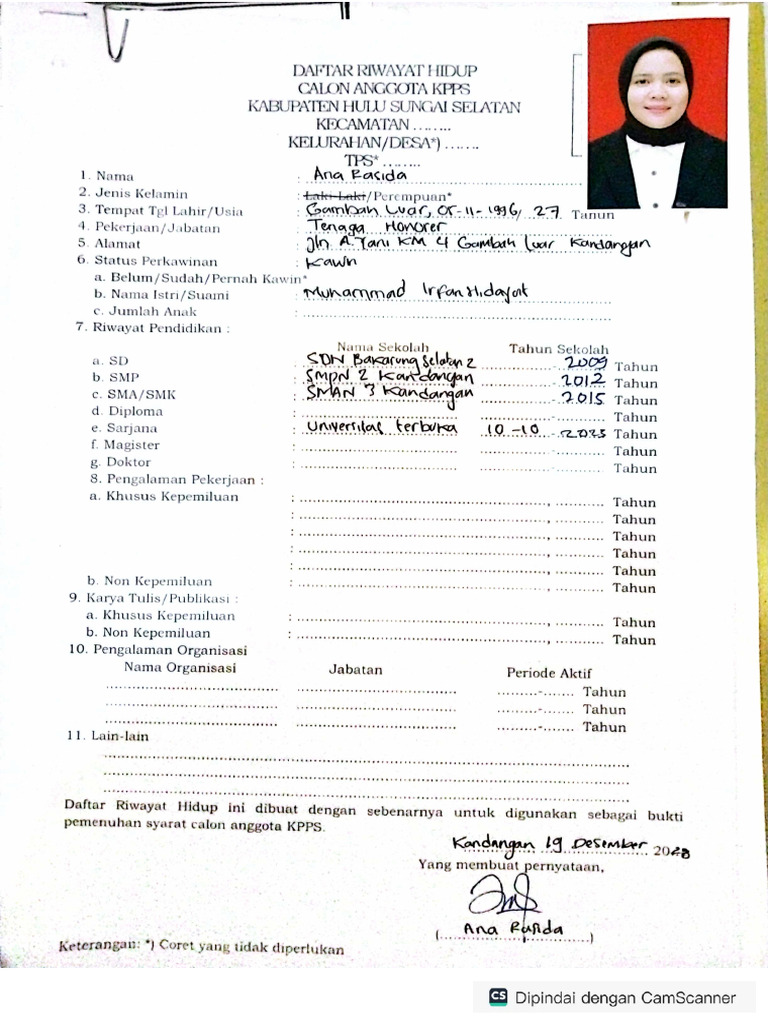 DAFTAR RIWAYAT HIDUP
CALON ANGGOTA KPPS
KABUPATEN HULU SUNGAI SELATAN
KECAMATAN ........
KELURAHAN/DESA*) .......
TPS* ........
1. Nama : Ana Rasida
2. Jenis Kelamin : Laki-Laki/Perempuan*
3. Tempat Tgl Lahir/Usia : Gambah Luar, 05-11-1996, 27 Tahun
4. Pekerjaan/Jabatan : Tenaga Honorer
5. Alamat : Jln A. Yani KM 4 Gambah Luar Kandangan
6. Status Perkawinan : Kawin
a. Belum/Sudah/Pernah Kawin*
b. Nama Istri/Suami : Muhammad Irfan Hidayat
c. Jumlah Anak :
7. Riwayat Pendidikan :
Nama Sekolah Tahun Sekolah
a. SD SDN Bakarung Selatan 2 - 2009 Tahun
b. SMP SMPN 2 Kandangan - 2012 Tahun
c. SMA/SMK SMAN 3 Kandangan - 2015 Tahun
d. Diploma - Tahun
e. Sarjana Universitas Terbuka 10-10 - 2023 Tahun
f. Magister - Tahun
g. Doktor - Tahun
8. Pengalaman Pekerjaan :
a. Khusus Kepemiluan : , Tahun
: , Tahun
: , Tahun
: , Tahun
: , Tahun
b. Non Kepemiluan : , Tahun
9. Karya Tulis/Publikasi :
a. Khusus Kepemiluan : , Tahun
b. Non Kepemiluan : , Tahun
10. Pengalaman Organisasi
Nama Organisasi Jabatan Periode Aktif
- Tahun
- Tahun
- Tahun
11. Lain-lain
Daftar Riwayat Hidup ini dibuat dengan sebenarnya untuk digunakan sebagai bukti
pemenuhan syarat calon anggota KPPS.
Kandangan 19 Desember 2023
Yang membuat pernyataan,
(Ana Rasida)
Keterangan: *) Coret yang tidak diperlukan
CS Dipindai dengan CamScanner